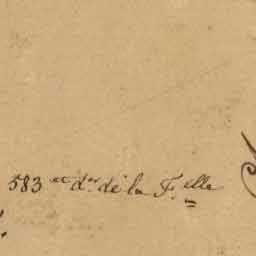 583 et dr. de la F.elle